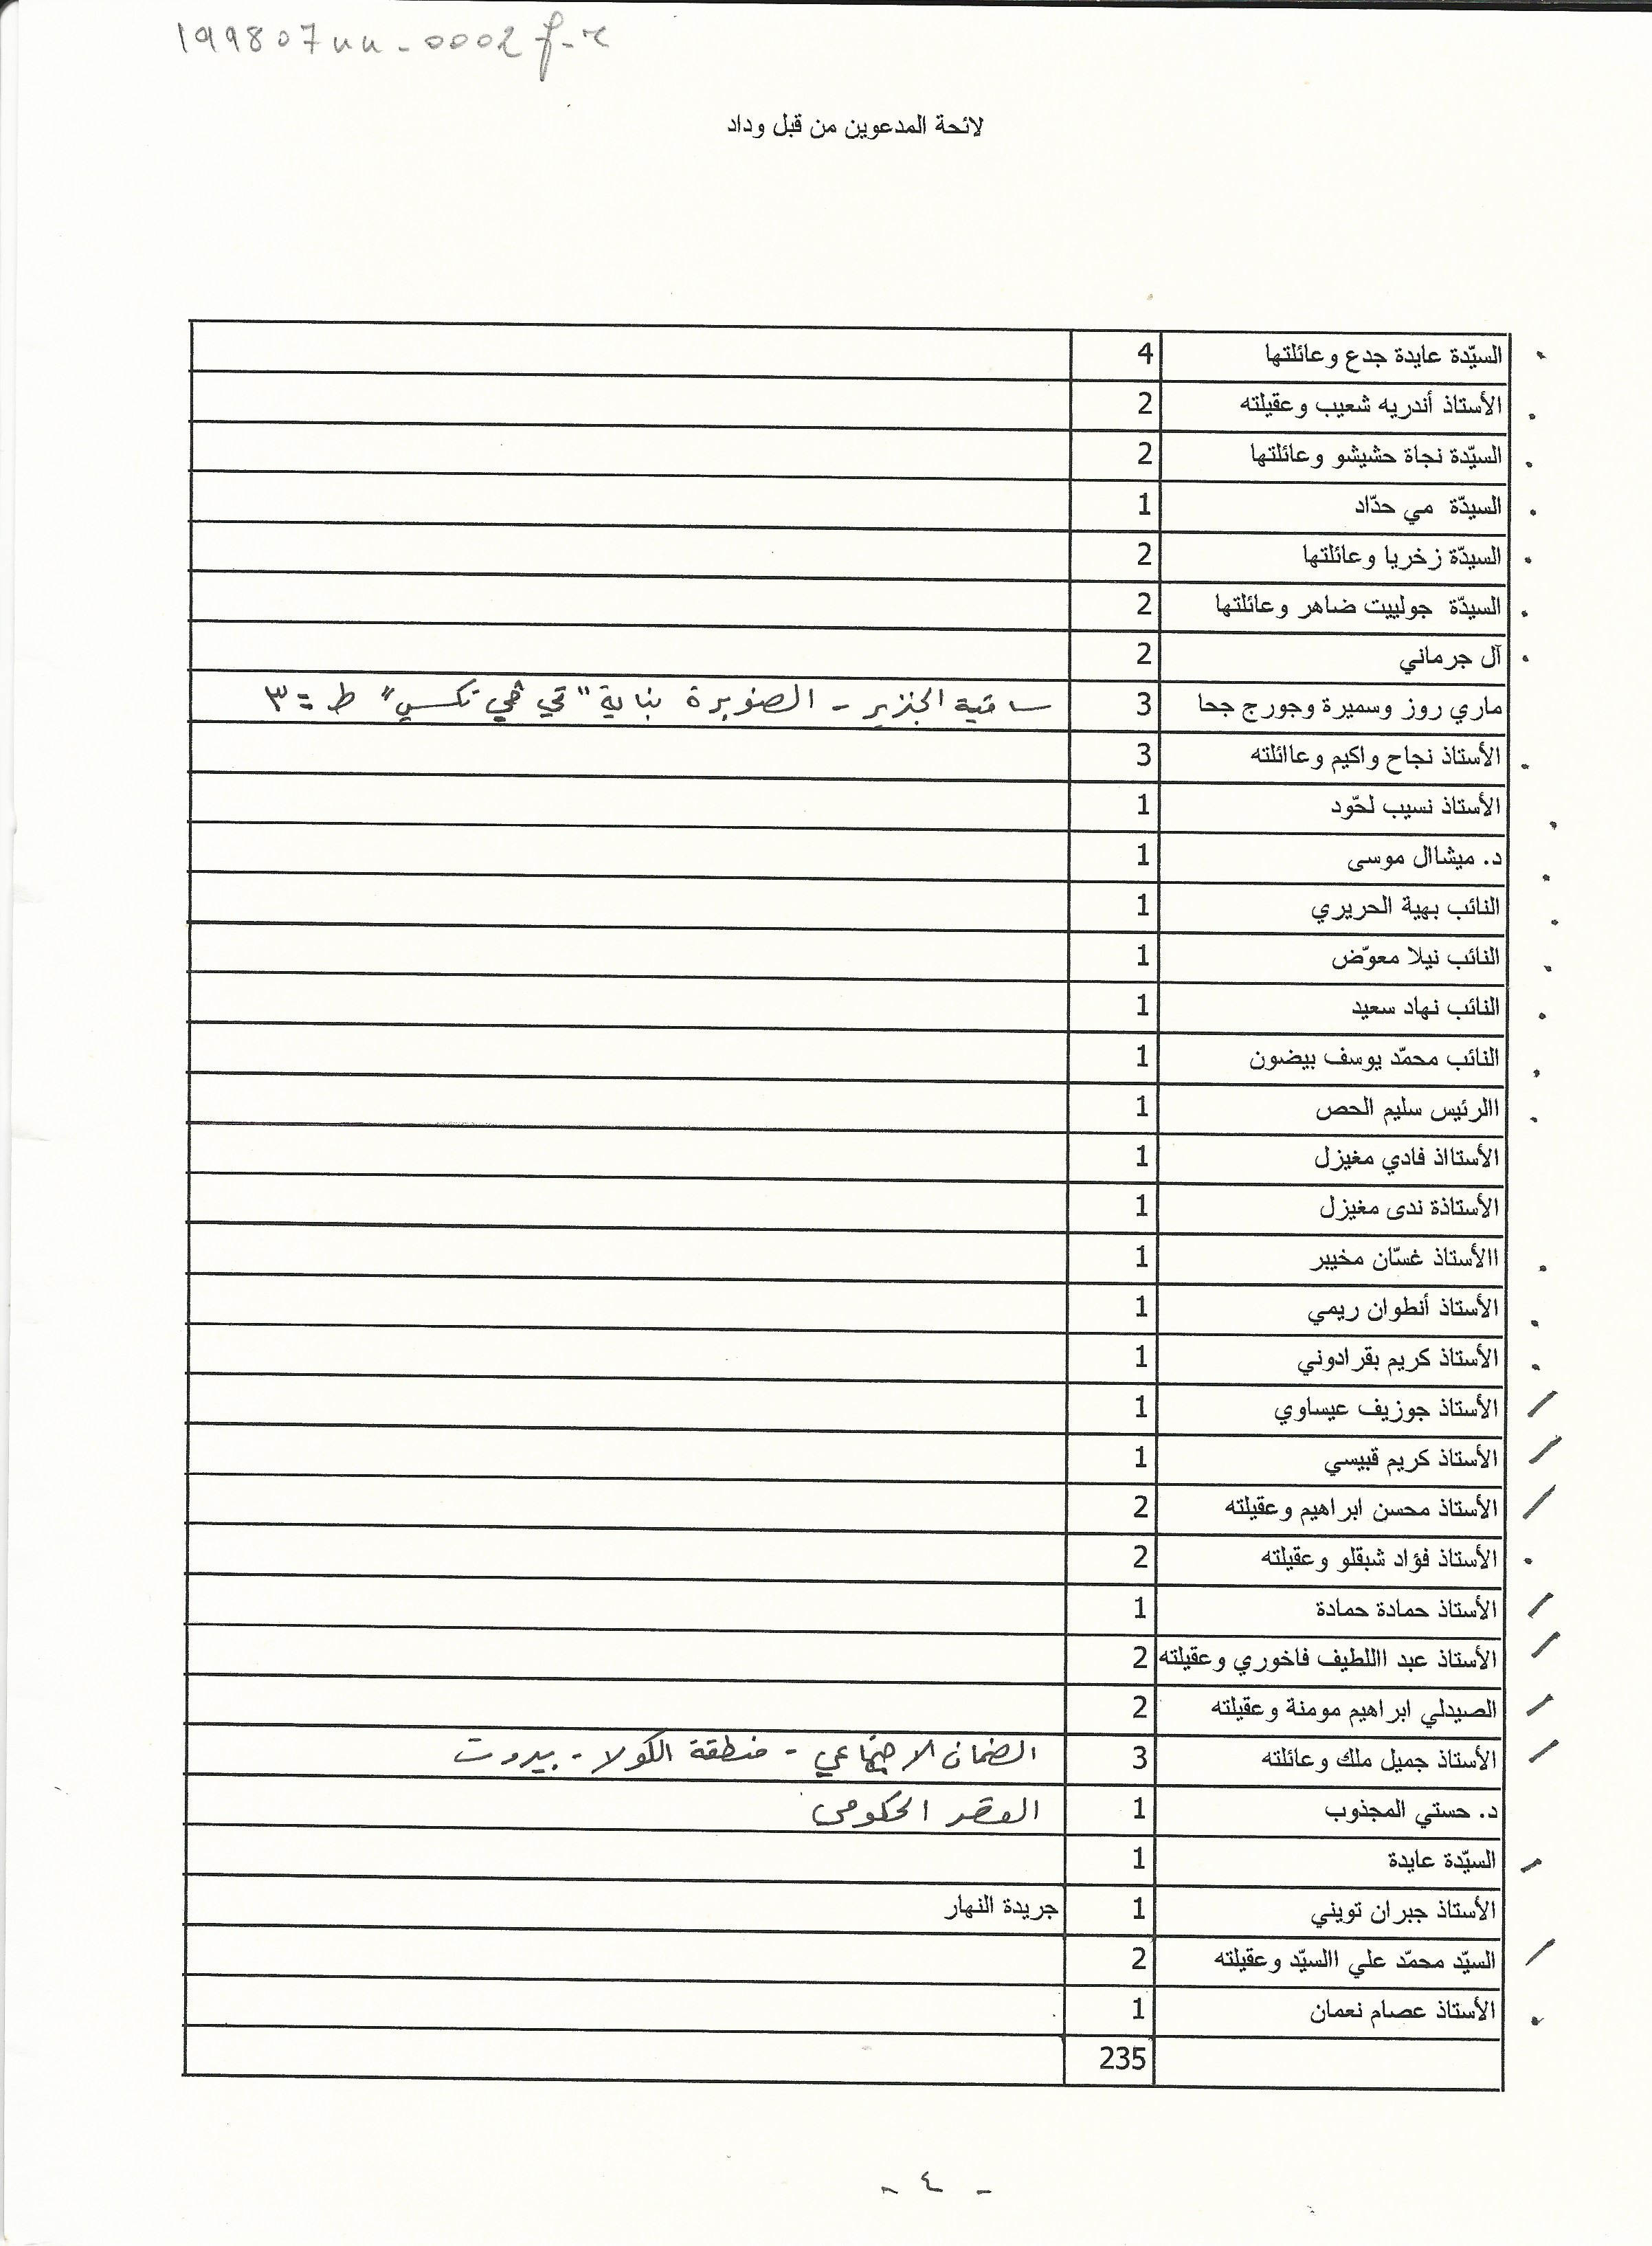 199807nn-0002f-r
لائحة المدعوين من قبل وداد
السيّدة عايدة جدع وعائلتها 4
الأستاذ أندريه شعيب وعقيلته 2
السيّدة نجاة حشيشو وعائلتها 2
السيدّة مي حدّاد 1
السيدّة زخريا وعائلتها 2
السيدّة جولييت ضاهر وعائلتها 2
آل جرماني 2
ماري روز وسميرة وجورج جحا 3 ساقية الجنزير - الصنوبرة بناية "تكسي" ط = ٣
الأستاذ نجاح واكيم وعاائلته 3
الأستاذ نسيب لحّود 1
د. ميشاال موسى 1
النائب بهية الحريري 1
النائب نيلا معوّض 1
النائب نهاد سعيد 1
النائب محمّد يوسف بيضون 1
االرئيس سليم الحص 1
الأستااذ فادي مغيزل 1
الأستاذة ندى مغيزل 1
االأستاذ غسّان مخيبر 1
الأستاذ أنطوان ريمي 1
الأستاذ كريم بقرادوني 1
الأستاذ جوزيف عيساوي 1
الأستاذ كريم قبيسي 1
الأستاذ محسن ابراهيم وعقيلته 2
الأستاذ فؤاد شبقلو وعقيلته 2
الأستاذ حمادة حمادة 1
الأستاذ عبد االلطيف فاخوري وعقيلته 2
الصيدلي ابراهيم مومنة وعقيلته 2
الأستاذ جميل ملك وعائلته 3 الضمان الاجتماعي - منطقة الكولا - بيروت
د. حستي المجذوب 1 القصر الحكومي
السيّدة عايدة 1
الأستاذ جبران تويني 1 جريدة النهار
السيّد محمّد علي االسيّد وعقيلته 2
الأستاذ عصام نعمان 1
235
- ٤ -